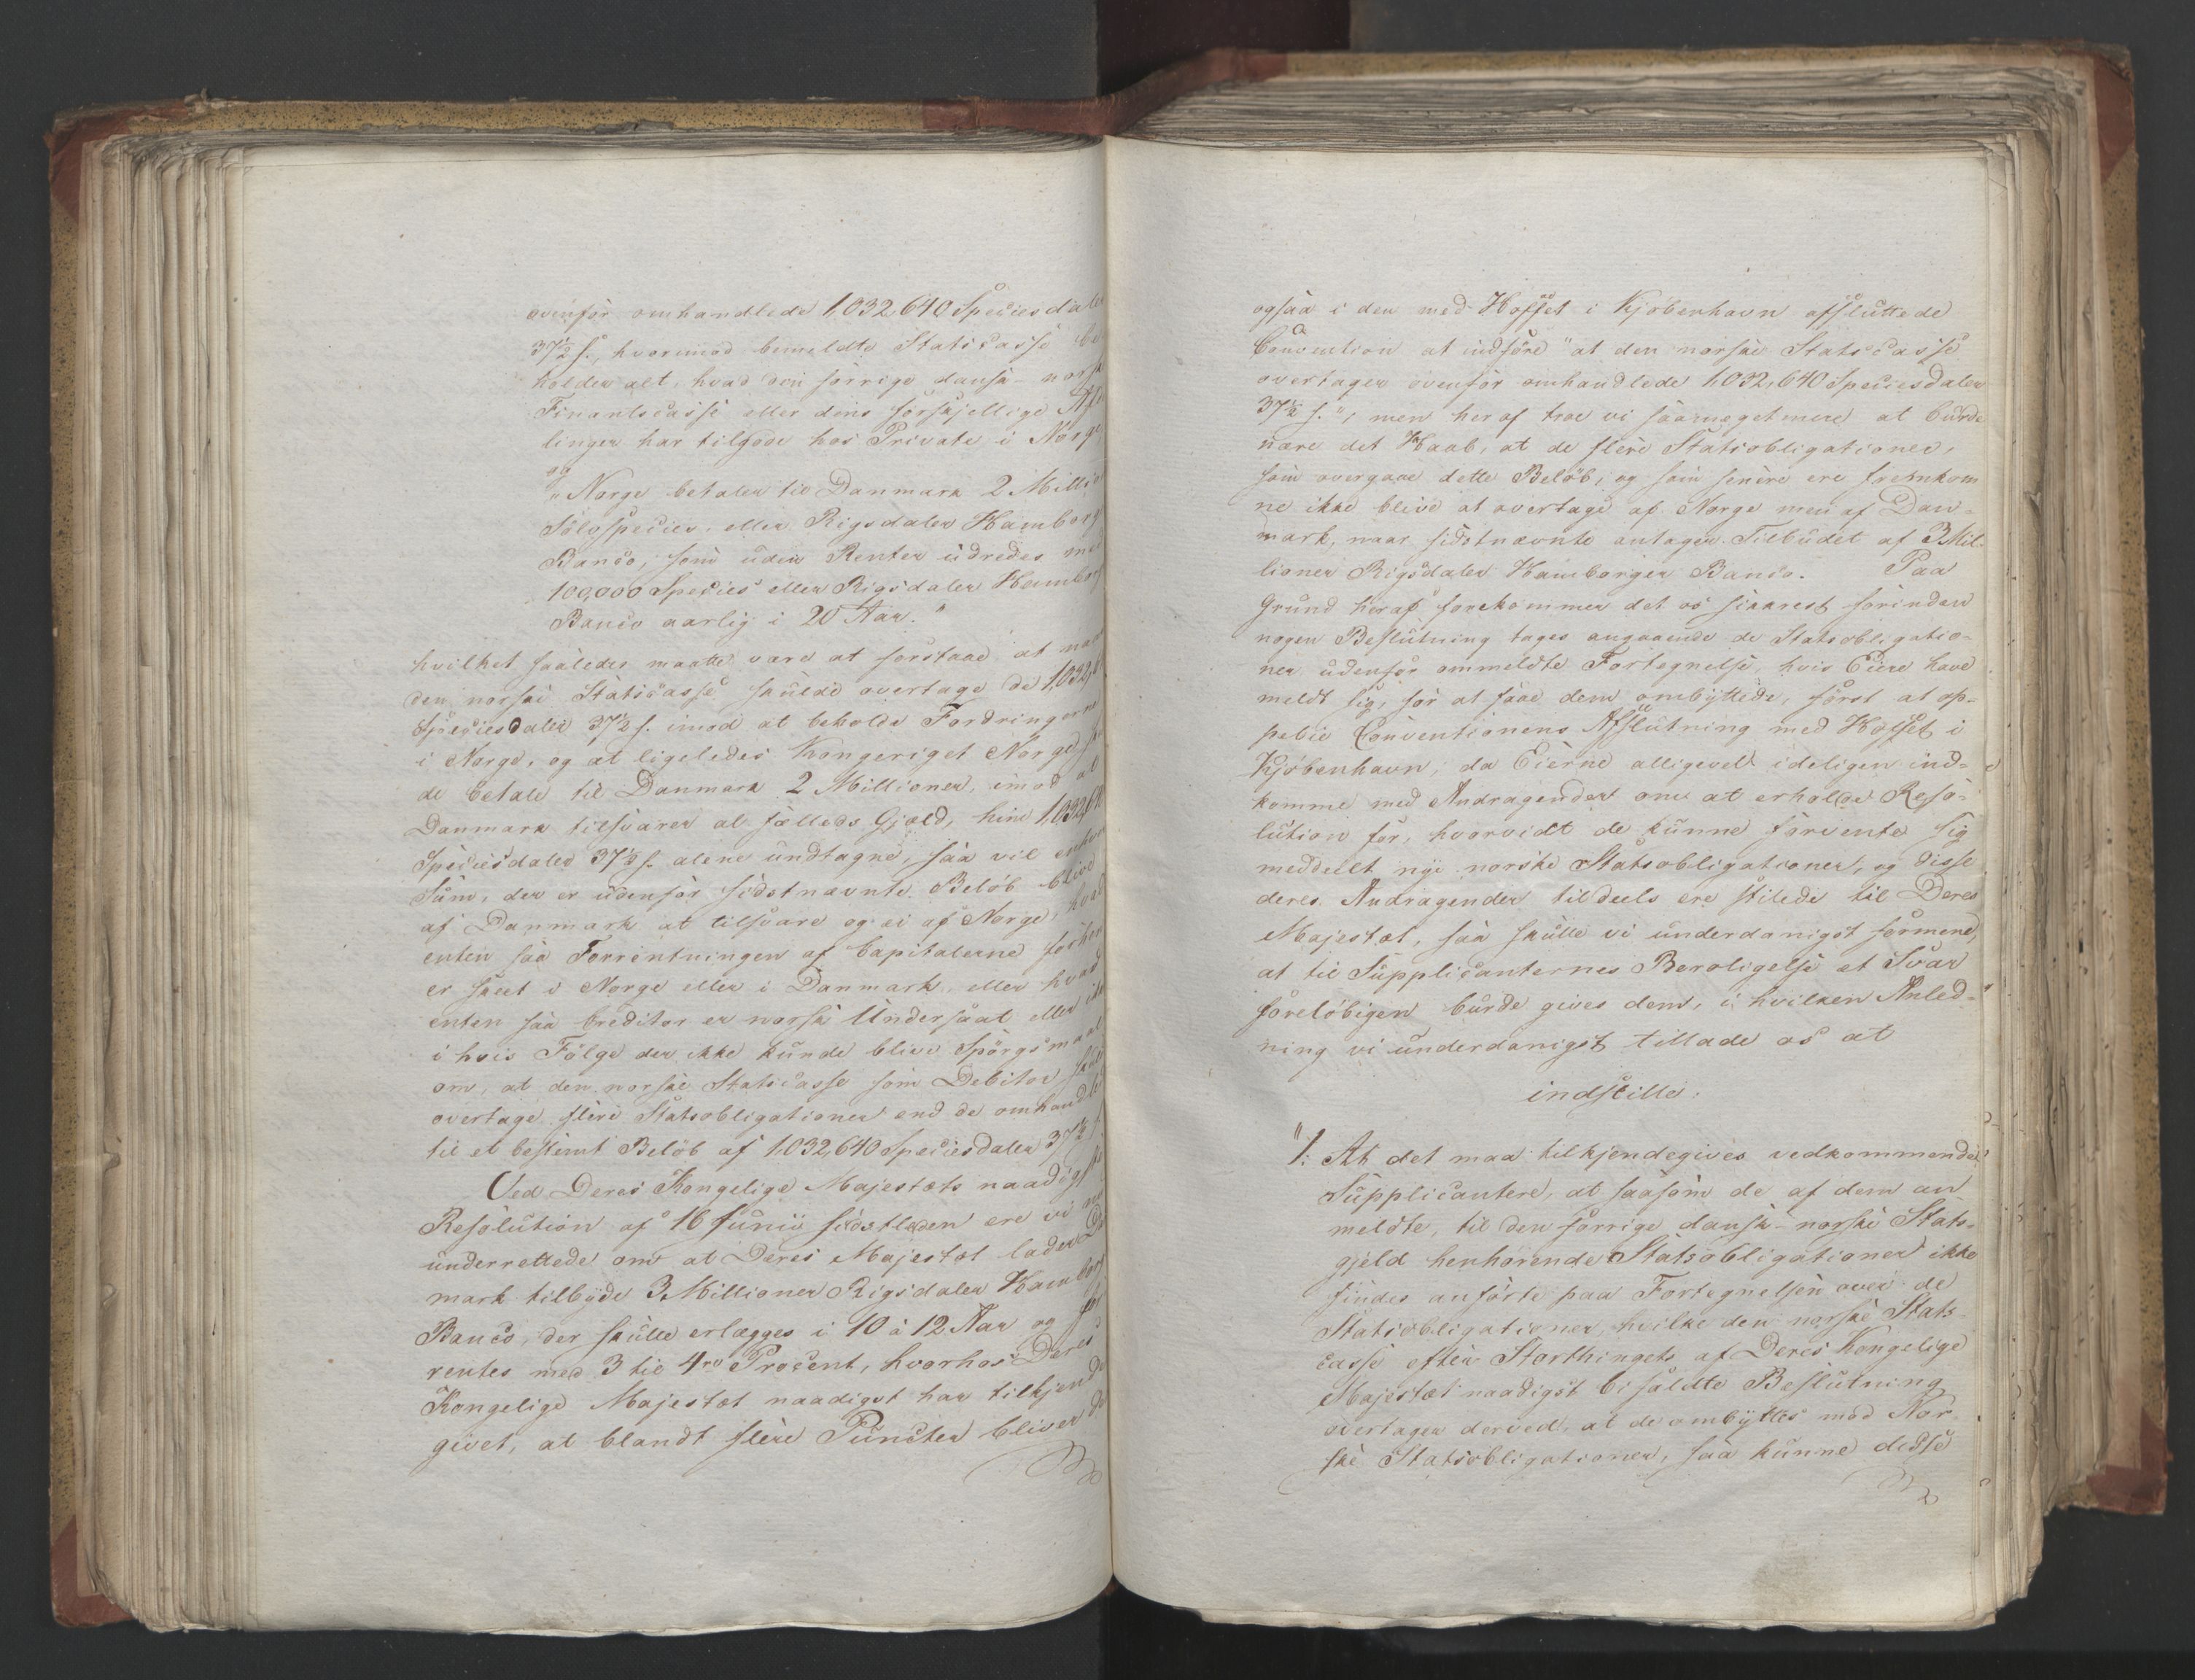 ovenfor omhandlede 1,032,640 Speciesdaler
37½ s., hvorimod bemeldte Statscasse be
holder alt, hvad den forrige dansk-norske
Finantscasse eller dens forskjellige Afde
linger har tilgode hos Private i Norge,
og
"Norge betaler til Danmark 2 Millio
Sölvspecies, eller Rigsdaler Hamborg
Banco, som uden Renter udredes med
100,000 Species eller Rigsdaler Hamborg
Banco aarlig i 20 Aar."
hvilket saaledes maatte være at forstaae, at naar
den norske Statscasse skulde overtage de 1,032,6
Speciesdaler 37½ s. imod at beholde Fordringerne
i Norge, og at ligeledes Kongeriget Norge
de betale til Danmark 2 Millioner, imod at
Danmark tilsvarer al fælleds Gjæld, hine 1,032,640
Speciesdaler 37½ s. alene undtagne, saa vil enhver
Sum, der er udenfor sidstnævnte Belöb blive
af Danmark at tilsvare og ei af Norge, hvad
enten saa Forrentningen af Capitalerne forhen
er skeet i Norge eller i Danmark, eller hvad
enten saa Creditor er norsk Undersaat eller
i hvis Fölge der ikke kunde blive Spörgsmaal
om, at den norske Statscasse som Debitor
overtage flere Statsobligationer end de omhandlede
til et bestemt Belöb af 1,032,640 Speciesdaler 37½ s
Ved Deres Kongelige Majestæts naadigste
Resolution af 16 Junii sidstleden ere vi
underrettede om at Deres Majestæt lader Dan
mark tilbyde 3 Millioner Rigsdaler Hamborg
Banco, der skulle erlægges i 10 à 12 Aar og for
rentes med 3 til 4ro Procent, hvorhos Deres
Kongelige Majestæt naadigst har tilkjende
givet, at blandt flere Puncter bliver
ogsaa i den med Hoffet i Kjöbenhavn afsluttede
Convention at indföre "at den norske Statscasse
overtager ovenfor omhandlede 1,032,640 Speciesdaler
37½ s.", men heraf troe vi saameget mere at burde
nære det Haab, at de flere Statsobligationer,
som overgaae dette Belöb, og som senere ere fremkom
ne ikke blive at overtage af Norge men af Dan-
mark, naar sidstnævnte antager Tilbudet af 3 Mil-
lioner Rigsdaler Hamborger Banco. Paa
Grund heraf forekommer det os sikkrest forinden
nogen Beslutning tages angaaende de Statsobligatio-
ner udenfor ommeldte Fortegnelse, hvis Eiere have
meldt sig, for at faae dem ombyttede, först at op-
pebie Conventionens Afslutning med Hoffet i
Kjöbenhavn; da Eierne alligevel ideligen ind-
komme med Andragender om at erholde Reso-
lution for, hvorvidt de kunne forvente sig
meddeelt nye norske Statsobligationer, og disse
deres Andragender tildeels ere stilede til Deres
Majestæt, saa skulle vi underdanigst formene,
at til Supplicanternes Beroligelse et Svar
foreløbigen burde gives dem, i hvilken Anled-
ning vi underdanigst tillade os at
indstille:
"1: At det maa tilkjendegives vedkommende
Supplicantere, at saasom de af dem an
meldte, til den forrige dansk-norske Stats-
gjeld henhörende Statsobligationer ikke
findes anförte paa Fortegnelsen over de
Statsobligationer, hvilke den norske Stats-
casse efter Storthingets af Deres Kongelige
Majestæt naadigst bifaldte Beslutning
overtager derved, at de ombyttes mod Nor-
ske Statsobligationer, saa kunne disse